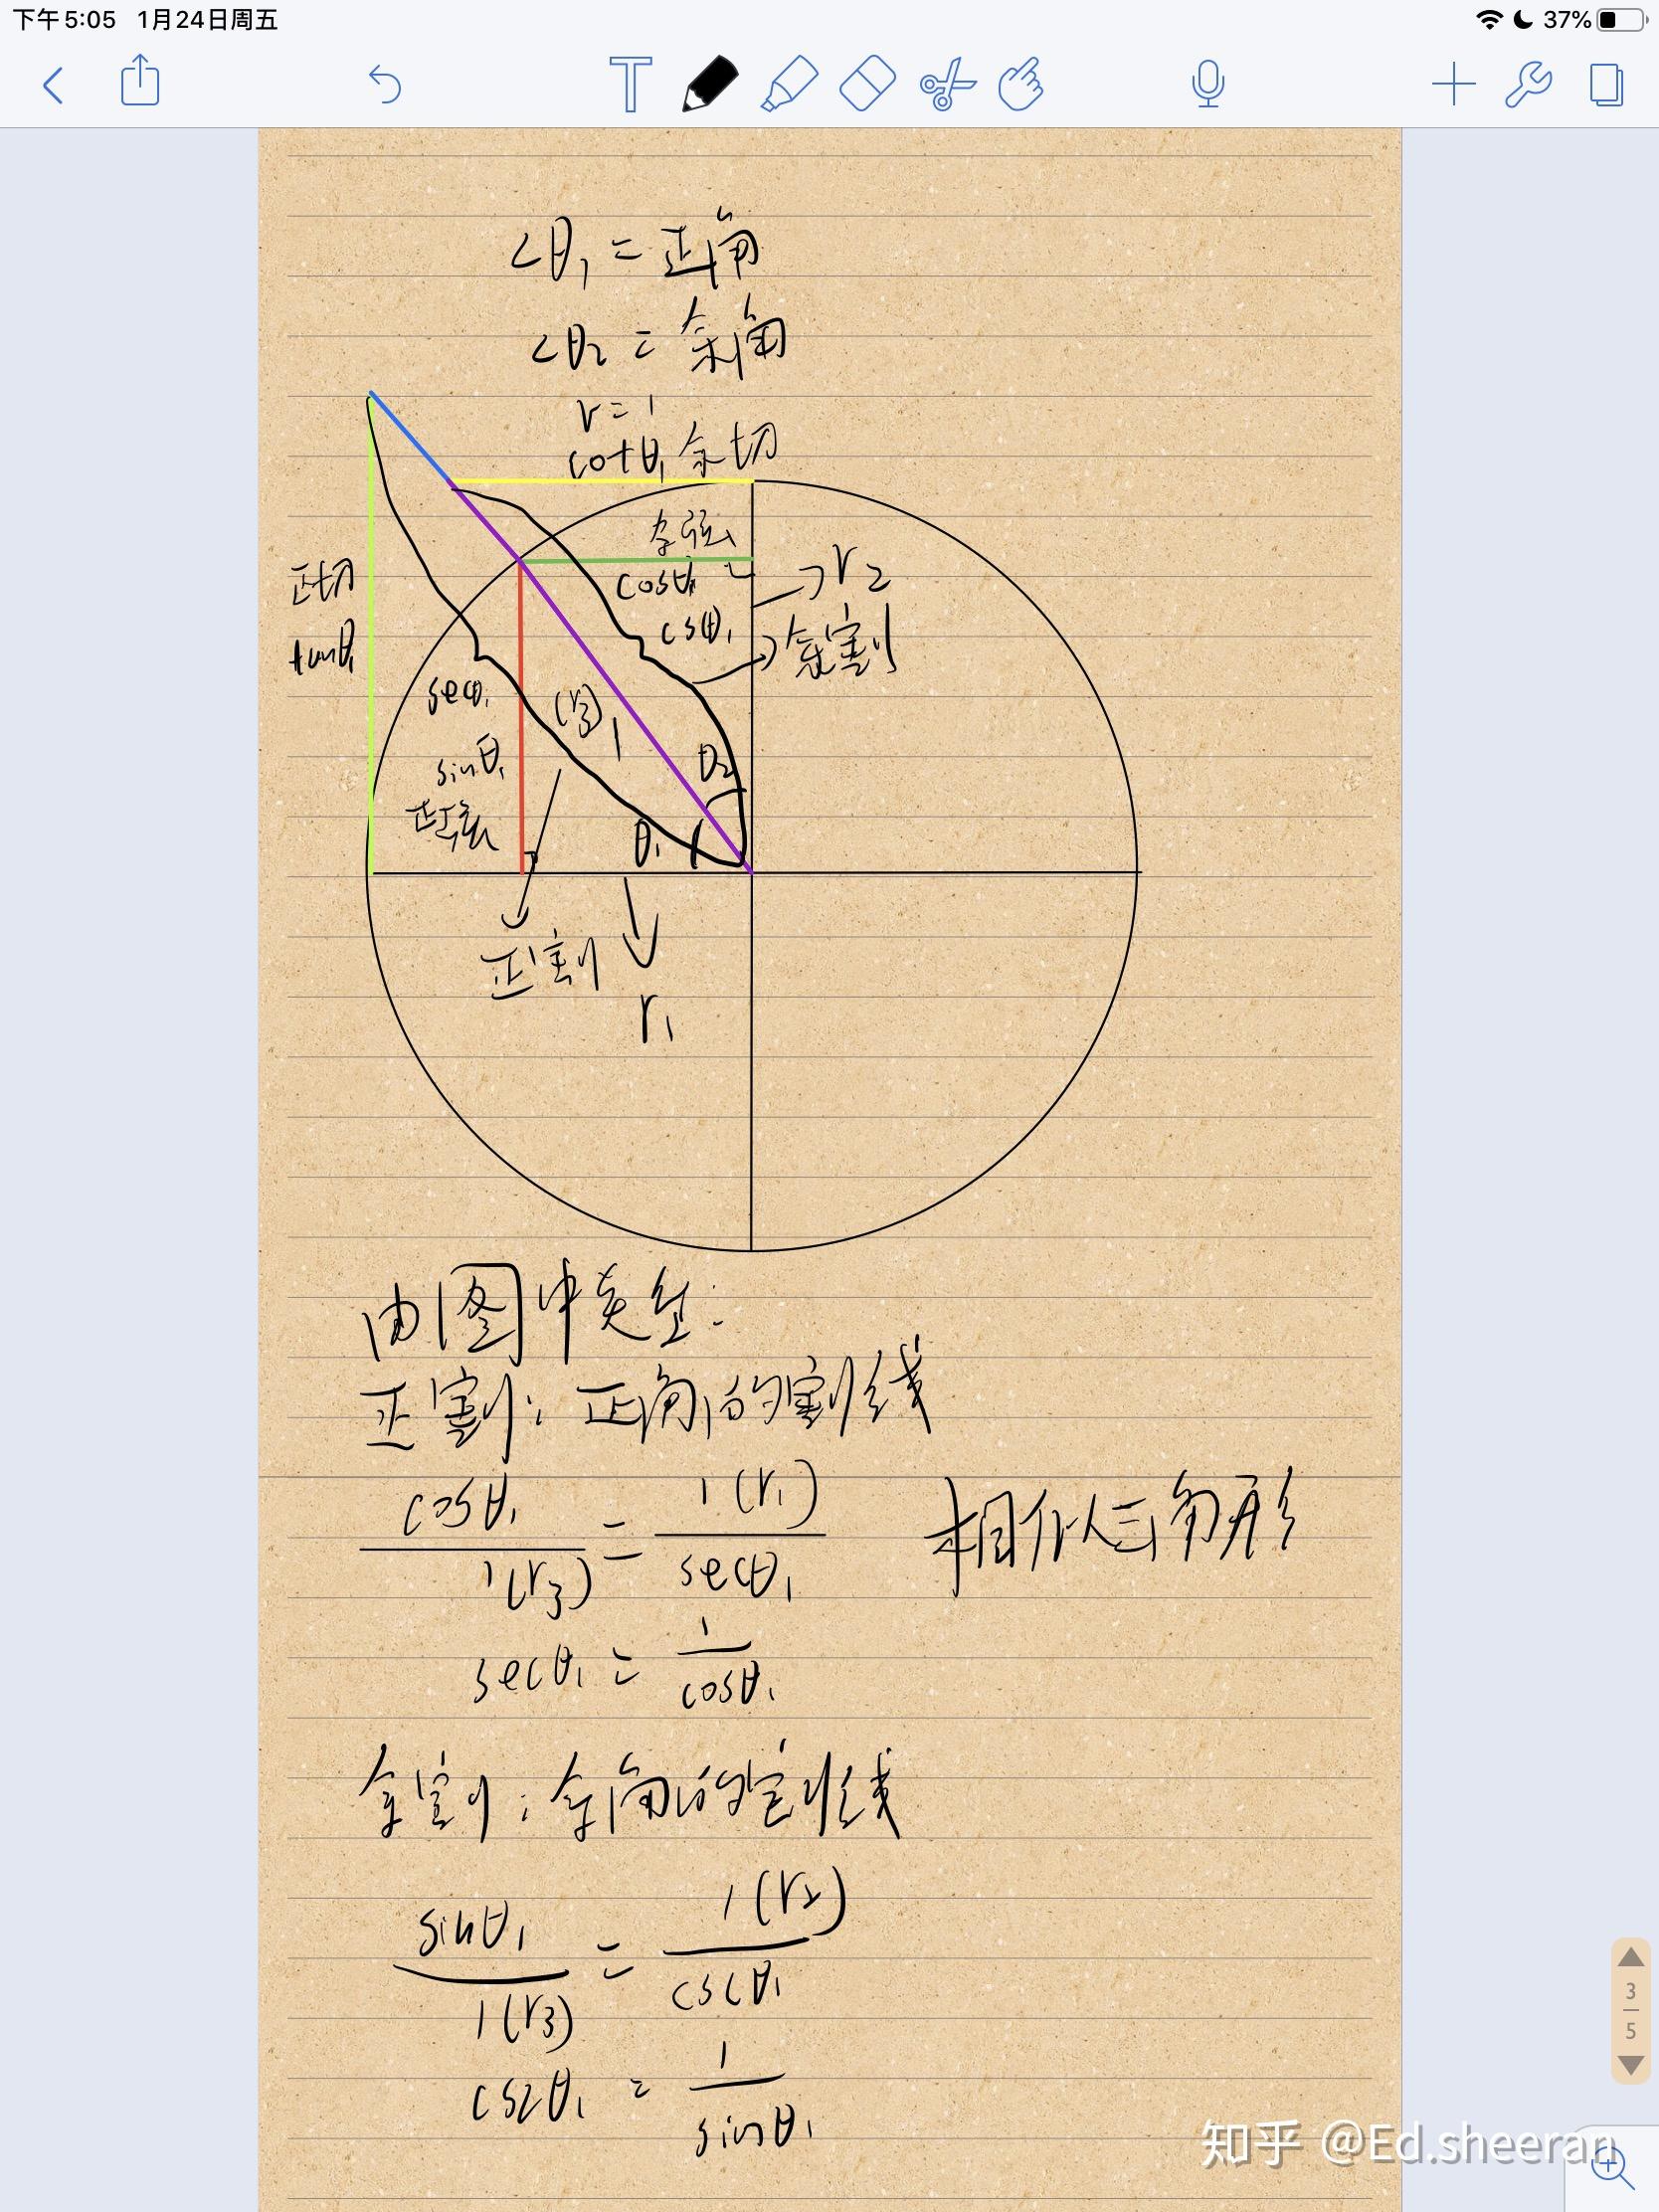 下午5:05 1月24日周五
37%
∠θ₁ = 正角
∠θ₂ = 余角
r = 1
cotθ₁ 余切
余弦
cosθ₁
r₂
正切
tanθ₁
cscθ₁
余割
secθ₁
(r₃) 1
sinθ₁
正弦
θ₂
θ₁
正割
r₁
由图中关系:
正割: 正角的割线
cosθ₁ / 1(r₃) = 1(r₁) / secθ₁ 相似三角形
secθ₁ = 1 / cosθ₁
余割: 余角的割线
sinθ₁ / 1(r₃) = 1(r₂) / cscθ₁
cscθ₁ = 1 / sinθ₁
3
5
知乎 @Ed.sheeran